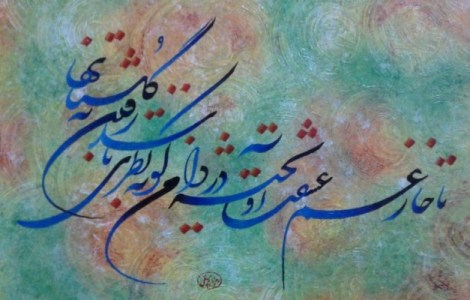 تا خار غم عشقت آویخته در دامن
کوته نظری باشد رفتن به گلستانها